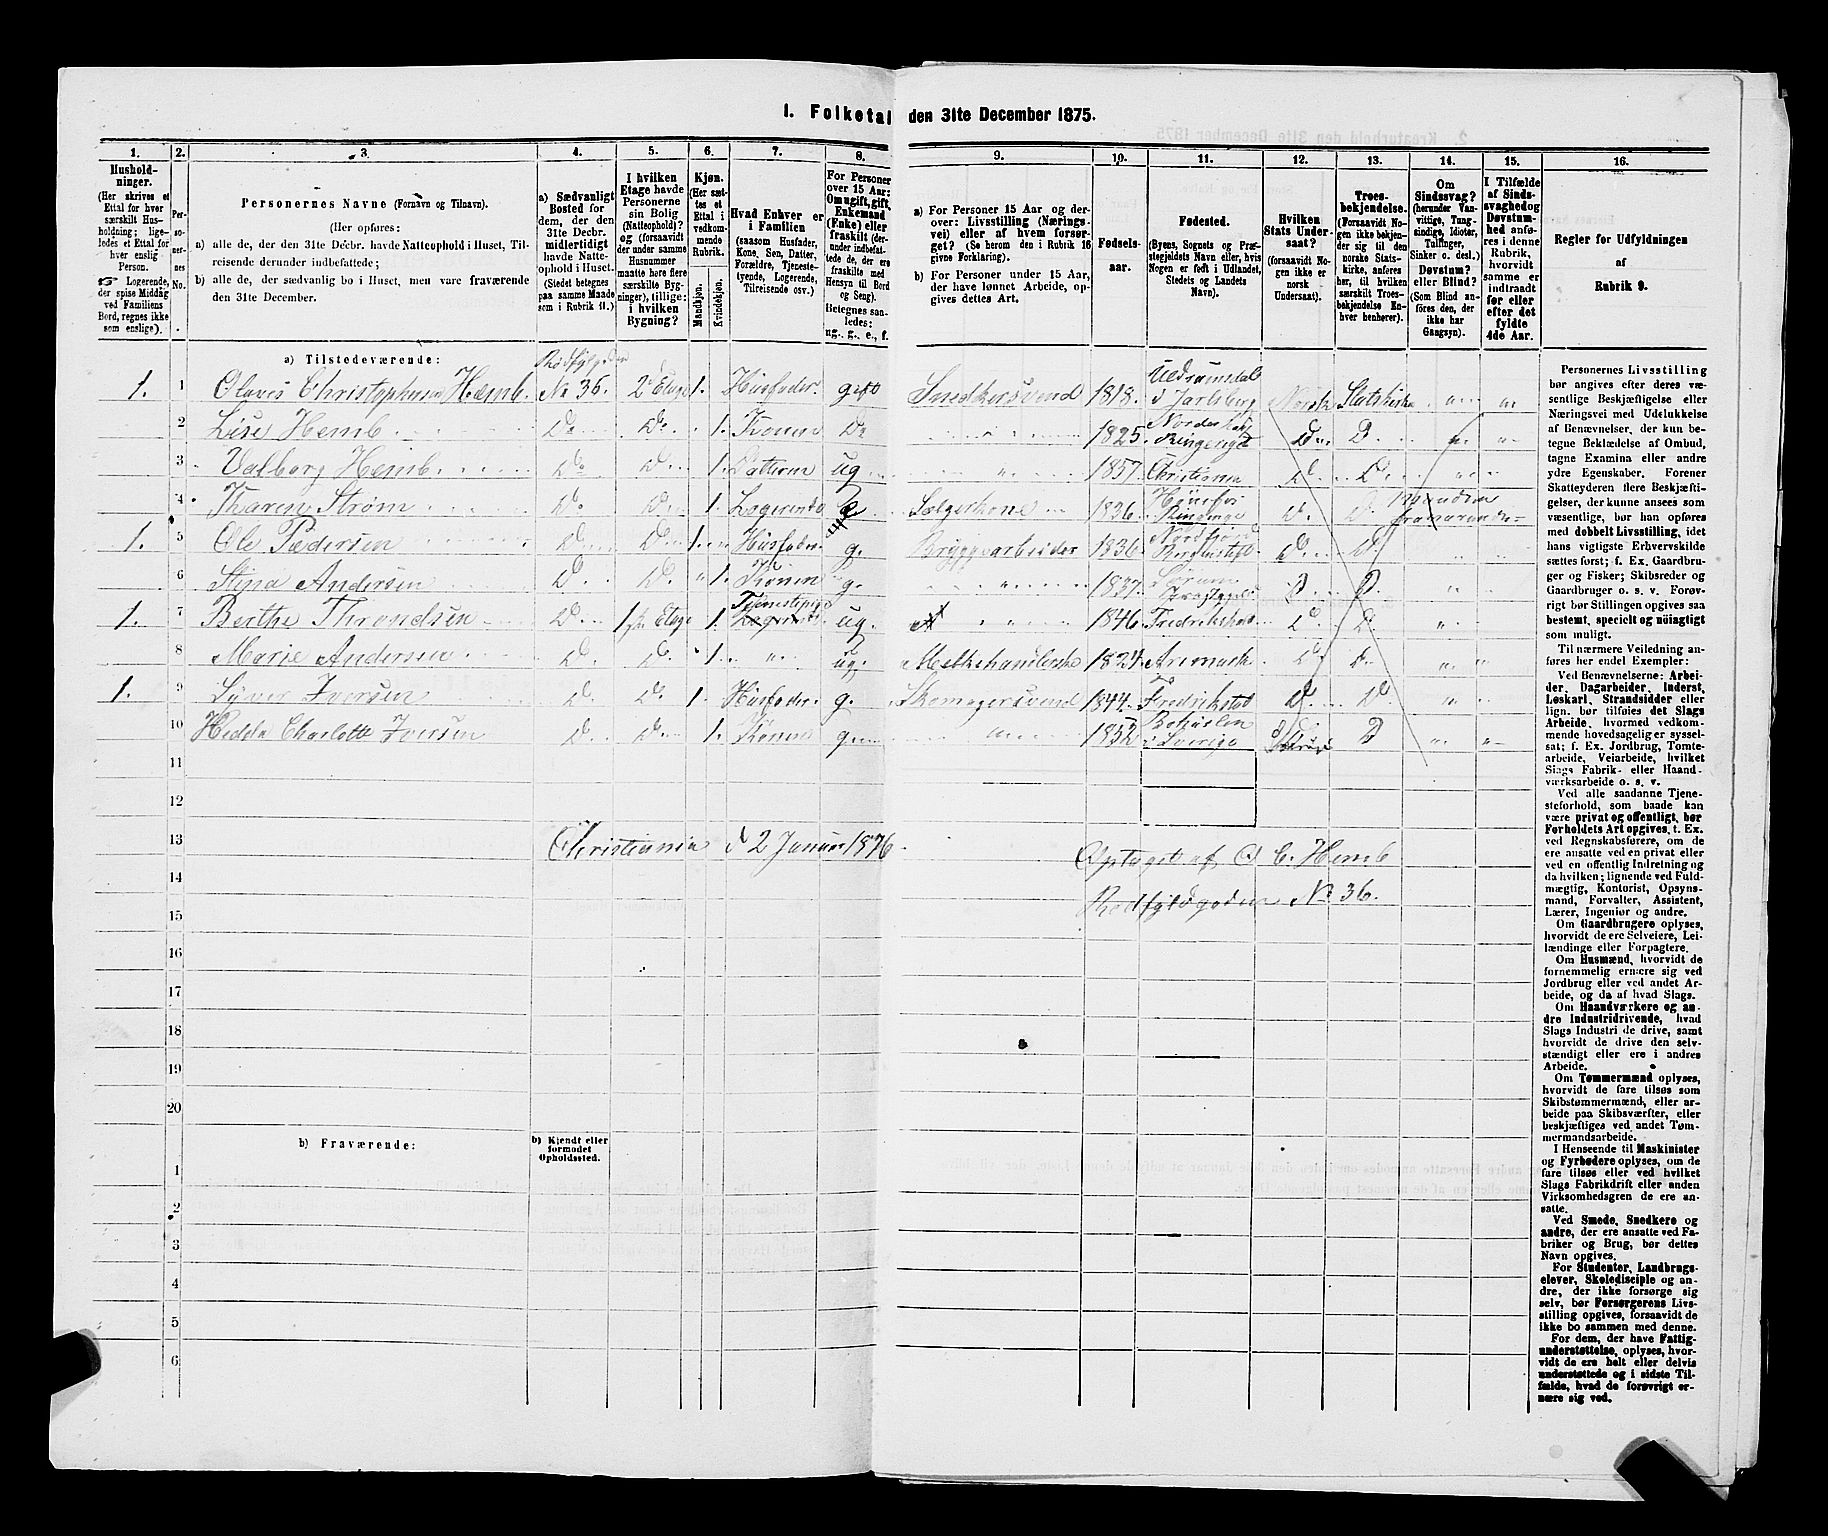 1. Folketal den 31te December 1875.
1.
Hushold-
ninger.
(Her skrives et
Ettal for hver
særskilt Hus-
holdning; lige-
ledes et Ettal for
hver enslig
Person.
☞ Logerende,
der spise Middag
ved Familiens
Bord, regnes ikke
som enslige).
2.
Per-
so-
ner-
nes
No.
3.
Personernes Navne (Fornavn og Tilnavn).
(Her opføres:
a) alle de, der den 31te Decbr. havde Natteophold i Huset, Til-
reisende derunder indbefattede;
b) alle de, der sædvanlig bo i Huset, men vare fraværende
den 31te December.
4.
a) Sædvanligt
Bosted for
dem, der den
31te Decbr.
midlertidigt
havde Natte-
ophold i Huset.
(Stedet betegnes
paa samme Maade
som i Rubrik 11.)
5.
I hvilken
Etage havde
Personerne
sin Bolig
(Natteophold)?
og (forsaavidt
der under samme
Husnummer
maatte høre flere
særskilte Byg-
ninger), tillige:
i hvilken
Bygning?
6.
Kjøn.
(Her sæt-
tes et
Ettal i
vedkom-
mende
Rubrik.
Mandkjøn.
Kvindekjøn.
7.
Hvad Enhver er
i Familien
(saasom Husfader,
Kone, Søn, Datter,
Forældre, Tjeneste-
tyende, Logerende,
Tilreisende osv.)
8.
For Personer
over 15 Aar:
Om ugift, gift,
Enkemand
(Enke) eller
fraskilt (der-
under indbefat-
tede de, der ere
fraskilte med
Hensyn til Bord
og Seng).
Betegnes saa-
ledes:
ug., g., e., f.
9.
a) For Personer 15 Aar og der-
over: Livsstilling (Nærings-
vei) eller af hvem forsør-
get? (Se herom den i Rubrik 16
givne Forklaring).
b) For Personer under 15 Aar,
der have lønnet Arbeide, op-
gives dettes Art.
10.
Fødsels-
aar.
11.
Fødested.
(Byens, Sognets og Præ-
stegjeldets Navn eller, hvis
Nogen er født i Udlandet,
Stedets og Landets
Navn).
12.
Hvilken
Stats Under-
saat?
(forsaavidt No-
gen ikke er
norsk
Undersaat).
13.
Troes-
bekjendelse.
(Forsaavidt No-
gen ikke bekjen-
der sig til den
norske Stats-
kirke, anføres
her, til hvilken
særskilt Troes-
bekjendelse En-
hver henhører).
14.
Om
Sindssvag?
(herunder Van-
vittige, Tung-
sindige, Idioter,
Tullinger,
Sinker o. desl.)
Døvstum?
eller Blind?
(Som Blind an-
føres den, der
ikke har
Gangsyn).
15.
I Tilfælde
af Sinds-
svaghed og
Døvstum-
hed anfø-
res i denne
Rubrik,
hvorvidt
samme er
indtraadt
før eller
efter det
fyldte
4de Aar.
16.
Regler for Udfyldningen
af
Rubrik 9.
a) Tilstedeværende:
1. 1 Olaves Christophersen Hæmb. No 36. 2 Etage 1. Husfader. gift Snedkersvend 1818. i Jarlsberg Norsk Statskirke
2 Lise Hemb Do Do 1. Konen Do 1825. Do Do
3 Valborg Hemb Do Do 1 Datteren ug 1857. Christiania Do Do
4 Karen Strøm Do Do 1 Logerende e 1836. Do Do
1. 5 Ole Pedersen Do Do 1 Husfader g. Bryggearbeider 1836. Do Do
6 Stina Andersen Do Do 1. Konen g. 1837. Do Do
1. 7 Berthe Throndsen Do 1ste Etage 1. Tjenestepige Logerende ug. 1846. Do Do
8 Marie Andersen Do Do 1 ug. Melkehandlerske Aremark Do Do
1. 9 Syver Iversen Do Do 1 Husfader g. Skomagersvend 1844. Fredrikstad Do Do
10 Hedda Charlotte Iversen Do Do 1. Konen g. 1852 i Sverige Do
11
12
13
14
15
16
17
18
19
20
Christiania d 2 Januar 1876.
Optaget af O C. Hemb
Rodfyldgaden No 36.
b) Fraværende:
b) Kjendt eller
formodet
Opholdssted.
1
2
3
4
5
6
Personernes Livsstilling
bør angives efter deres væ-
sentlige Beskjæftigelse eller
Næringsvei med Udelukkelse
af Benævnelser, der kun be-
tegne Beklædelse af Ombud,
tagne Examina eller andre
ydre Egenskaber. Forener
Skatteyderen flere Beskjæfti-
gelser, der kunne ansees som
væsentlige, bør han opføres
med dobbelt Livsstilling, idet
hans vigtigste Erhvervskilde
sættes først; f. Ex. Gaardbru-
ger og Fisker; Skibsreder og
Gaardbruger o. s. v. Forøv-
rigt bør Stillingen opgives saa
bestemt, specielt og nøiagtigt
som muligt.
Til nærmere Veiledning an-
føres her endel Exempler:
Ved Benævnelserne: Arbei-
der, Dagarbeider, Inderst,
Løskarl, Strandsidder eller
lign. bør tilføies det Slags
Arbeide, hvormed vedkom-
mende hovedsagelig er syssel-
sat; f. Ex. Jordbrug, Tomte-
arbeide, Veiarbeide, hvilket
Slags Fabrik- eller Haand-
værksarbeide o. s. v.
Ved alle saadanne Tjene-
steforhold, som baade kan
være privat og offentligt, bør
Forholdets Art opgives, t. Ex.
ved Regnskabsførere, om de
ere ansatte ved en privat eller
ved en offentlig Indretning og
da hvilken; lignende ved Fuld-
mægtig, Kontorist, Opsyns-
mand, Forvalter, Assistent,
Lærer, Ingeniør og andre.
Om Gaardbrugere oplyses,
hvorvidt de ere Selveiere, Lei-
lændinge eller Forpagtere.
Om Husmænd, hvorvidt de
fornemmelig ernære sig ved
Jordbrug eller ved andet Ar-
beide, og da af hvad Slags.
Om Haandværkere og an-
dre Industridrivende, hvad
Slags Industri de drive, samt
hvorvidt de drive den selv-
stændigt eller ere i andres
Arbeide.
Om Tømmermænd oplyses,
hvorvidt de fare tilsøs som
Skibstømmermænd, eller ar-
beide paa Skibsværfter, eller
beskjæftiges ved andet Tøm-
mermandsarbeide.
I Henseende til Maskinister
og Fyrbødere oplyses, om de
fare tilsøs eller ved hvilket
Slags Fabrikdrift eller anden
Virksomhedsgren de ere an-
satte.
Ved Smede, Snedkere og
andre, der ere ansatte ved Fa-
briker og Brug, bør dettes
Navn opgives.
For Studenter, Landbrugs-
elever, Skoledisciple og an-
dre, der ikke forsørge sig
selv, bør Forsørgerens Livs-
stilling opgives, forsaavidt de
ikke bo sammen med denne.
For dem, der have Fattig-
understøttelse, oplyses, hvor-
vidt de ere helt eller delvis
understøttede og i sidste Til-
fælde, hvad de forøvrigt er-
nære sig ved.